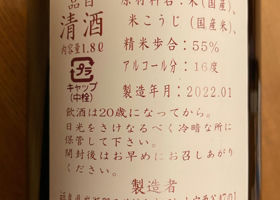 品目
清酒
内容量1.8ℓ
プラ
キャップ
(中栓)
原材料名:米(国産)、
米こうじ(国産米)
精米歩合:55%
アルコール分:16度
製造年月:2022.01
飲酒は20歳になってから。
日光をさけなるべく冷暗な所に
保管して下さい。
開封後はお早めにお召しあがり
ください。
製造者